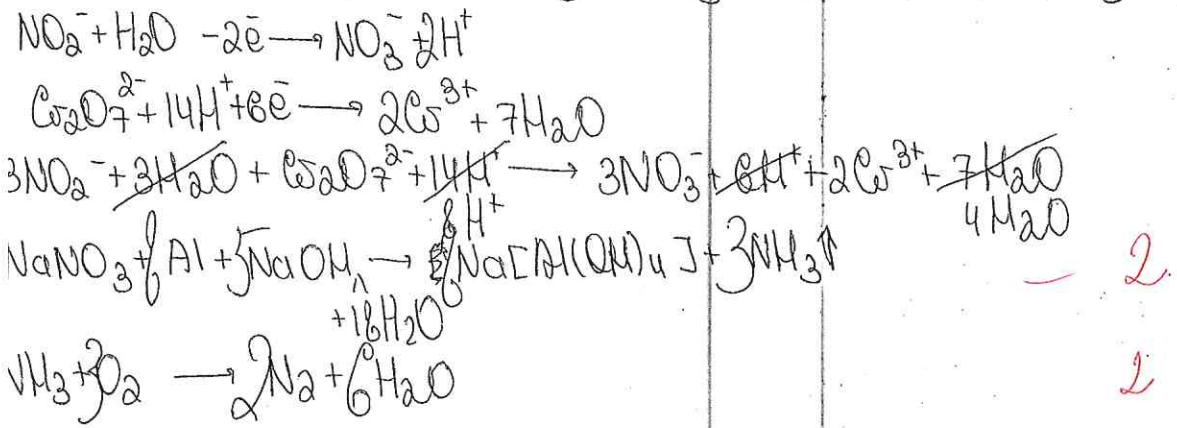 NO₂⁻ + H₂O - 2ē → NO₃⁻ + 2H⁺
Cr₂O₇²⁻ + 14H⁺ + 6ē → 2Cr³⁺ + 7H₂O
3NO₂⁻ + 3H₂O + Cr₂O₇²⁻ + 14H⁺ → 3NO₃⁻ + 6H⁺ + 2Cr³⁺ + 7H₂O
8H⁺ 4H₂O
NaNO₃ + 8Al + 5NaOH → 8Na[Al(OH)₄] + 3NH₃↑ — 2.
+ 18H₂O
NH₃ + 3O₂ → 2N₂ + 6H₂O 2